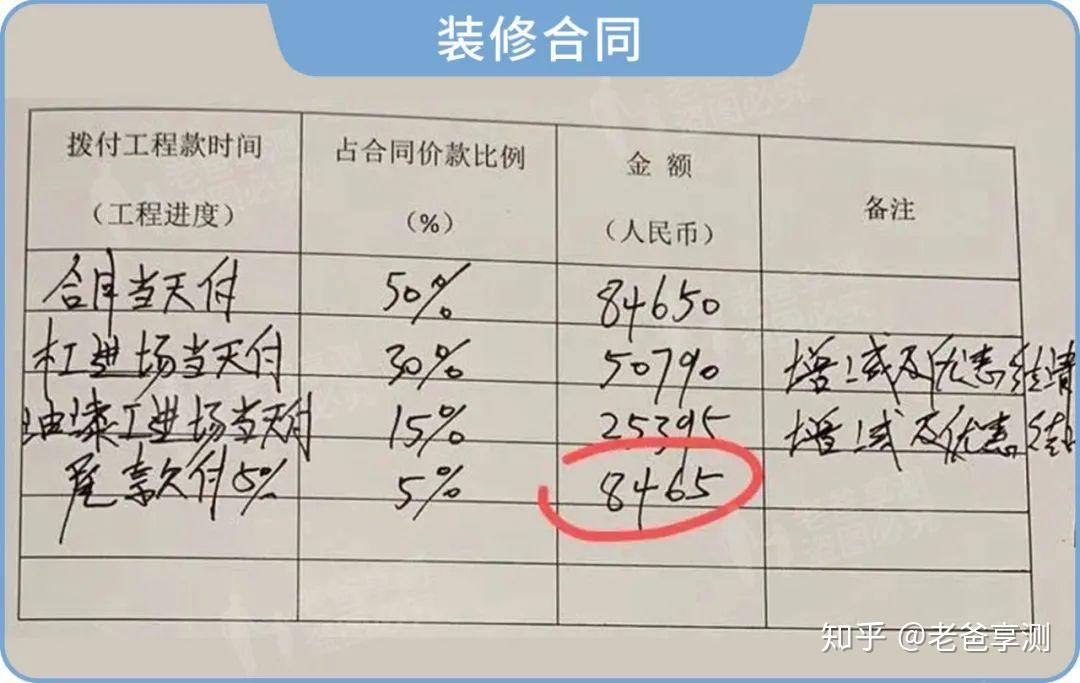 装修合同
拨付工程款时间
(工程进度)
占合同价款比例
(%)
金 额
(人民币)
备注
合同当天付 50% 84650
木工进场当天付 30% 50790 增减或及优惠结清
油漆工进场当天付 15% 25395 增减或及优惠结
尾款欠付5% 5% 8465
知乎 @老爸享测
老爸享测
盗图必究